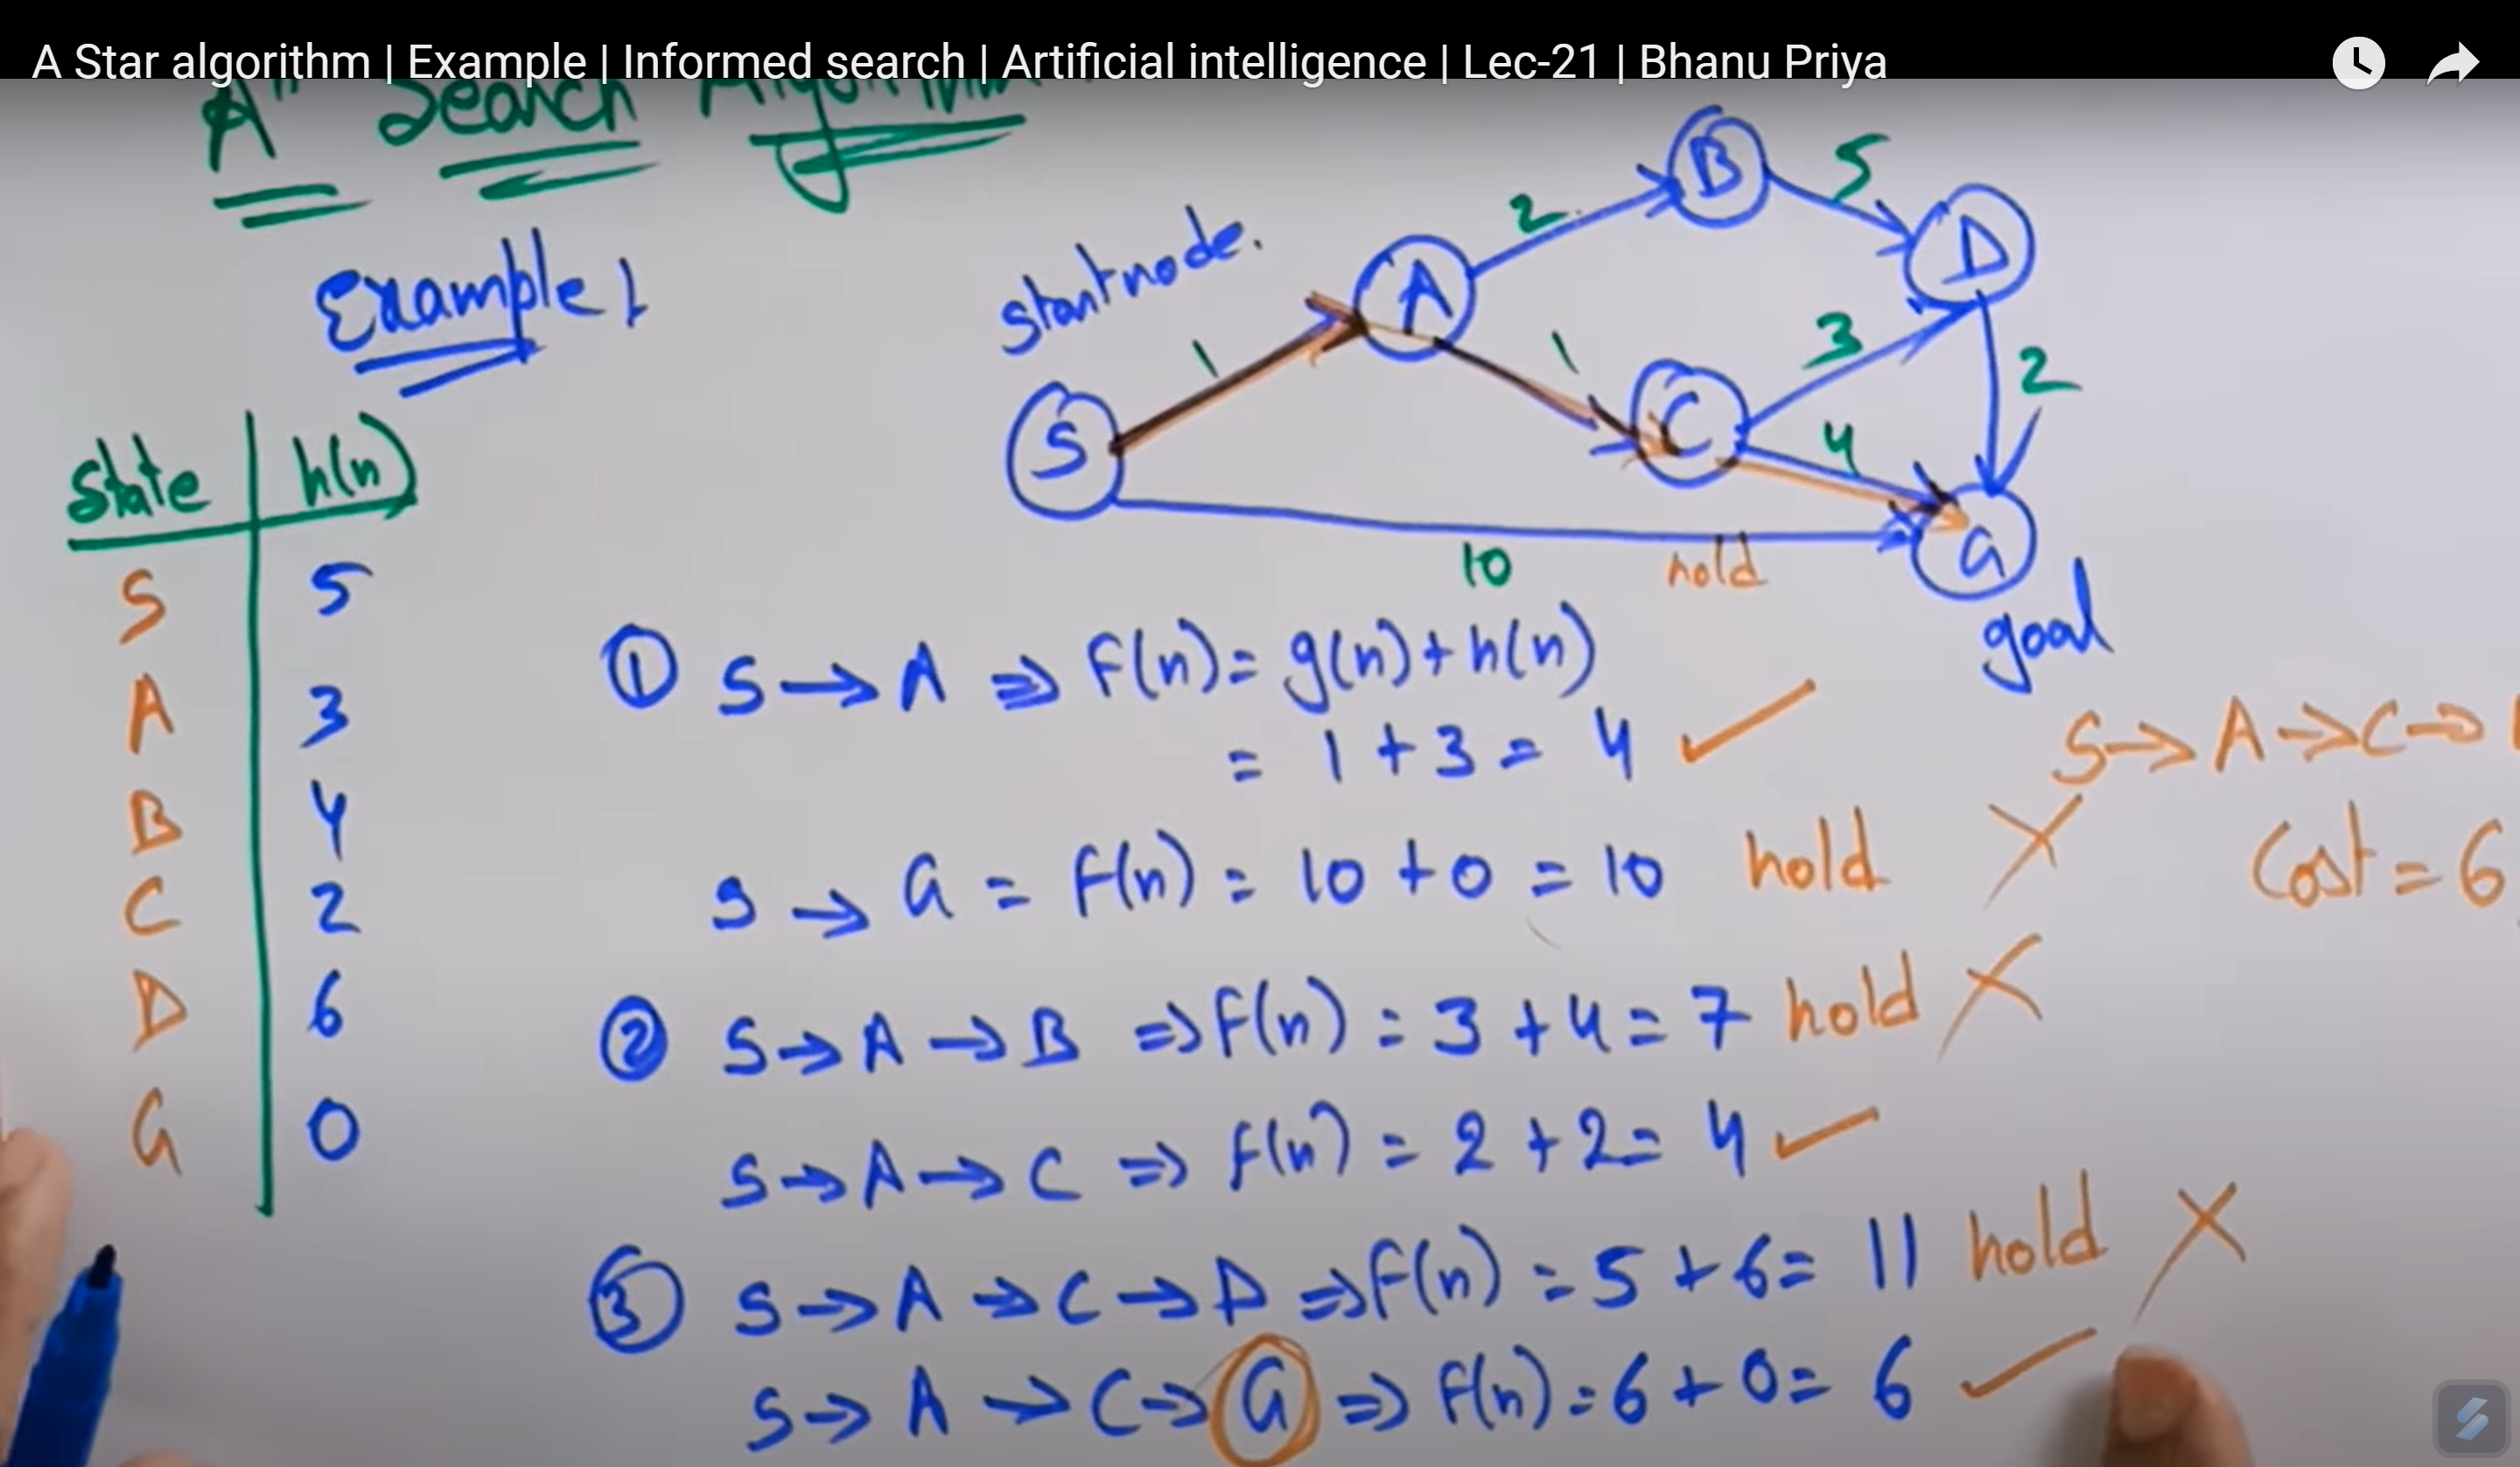 A Star algorithm | Example | Informed search | Artificial intelligence | Lec-21 | Bhanu Priya
A* Search Algorithm
Example 1
start node.
S
A
B
C
D
G
1
2
5
1
3
4
2
10
hold
goal
State | h(n)
S 5
A 3
B 4
C 2
D 6
G 0
① S → A ⇒ F(n) = g(n) + h(n)
= 1 + 3 = 4 ✓
S → G = F(n) = 10 + 0 = 10 hold ✗
② S → A → B ⇒ F(n) = 3 + 4 = 7 hold ✗
S → A → C ⇒ F(n) = 2 + 2 = 4 ✓
③ S → A → C → D ⇒ F(n) = 5 + 6 = 11 hold ✗
S → A → C → G ⇒ F(n) = 6 + 0 = 6 ✓
S → A → C →
Cost = 6